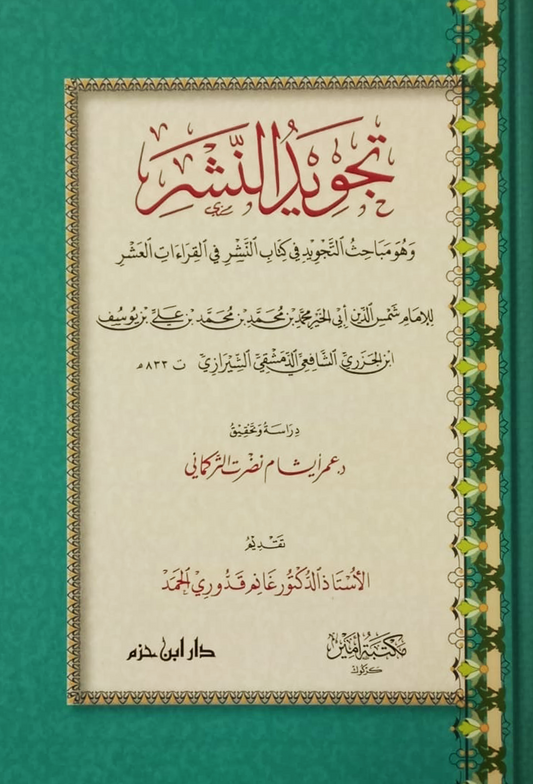 تجويد النشر
وَهُوَ مَبَاحِثُ التَّجْوِيدِ فِي كِتَابِ النَّشْرِ فِي القِرَاءَاتِ العَشْرِ
للإمام شمس الدين أبي الخير محمد بن محمد بن محمد بن علي بن يوسف
ابن الجزري الشافعي الدمشقي الشيرازي ت ٨٣٣ هـ
دراسة وتحقيق
د. عمر أيشام نصرت التركماني
تقديم
الأستاذ الدكتور غانم قدوري الحمد
مكتبة أمير
كركوك
دار ابن حزم